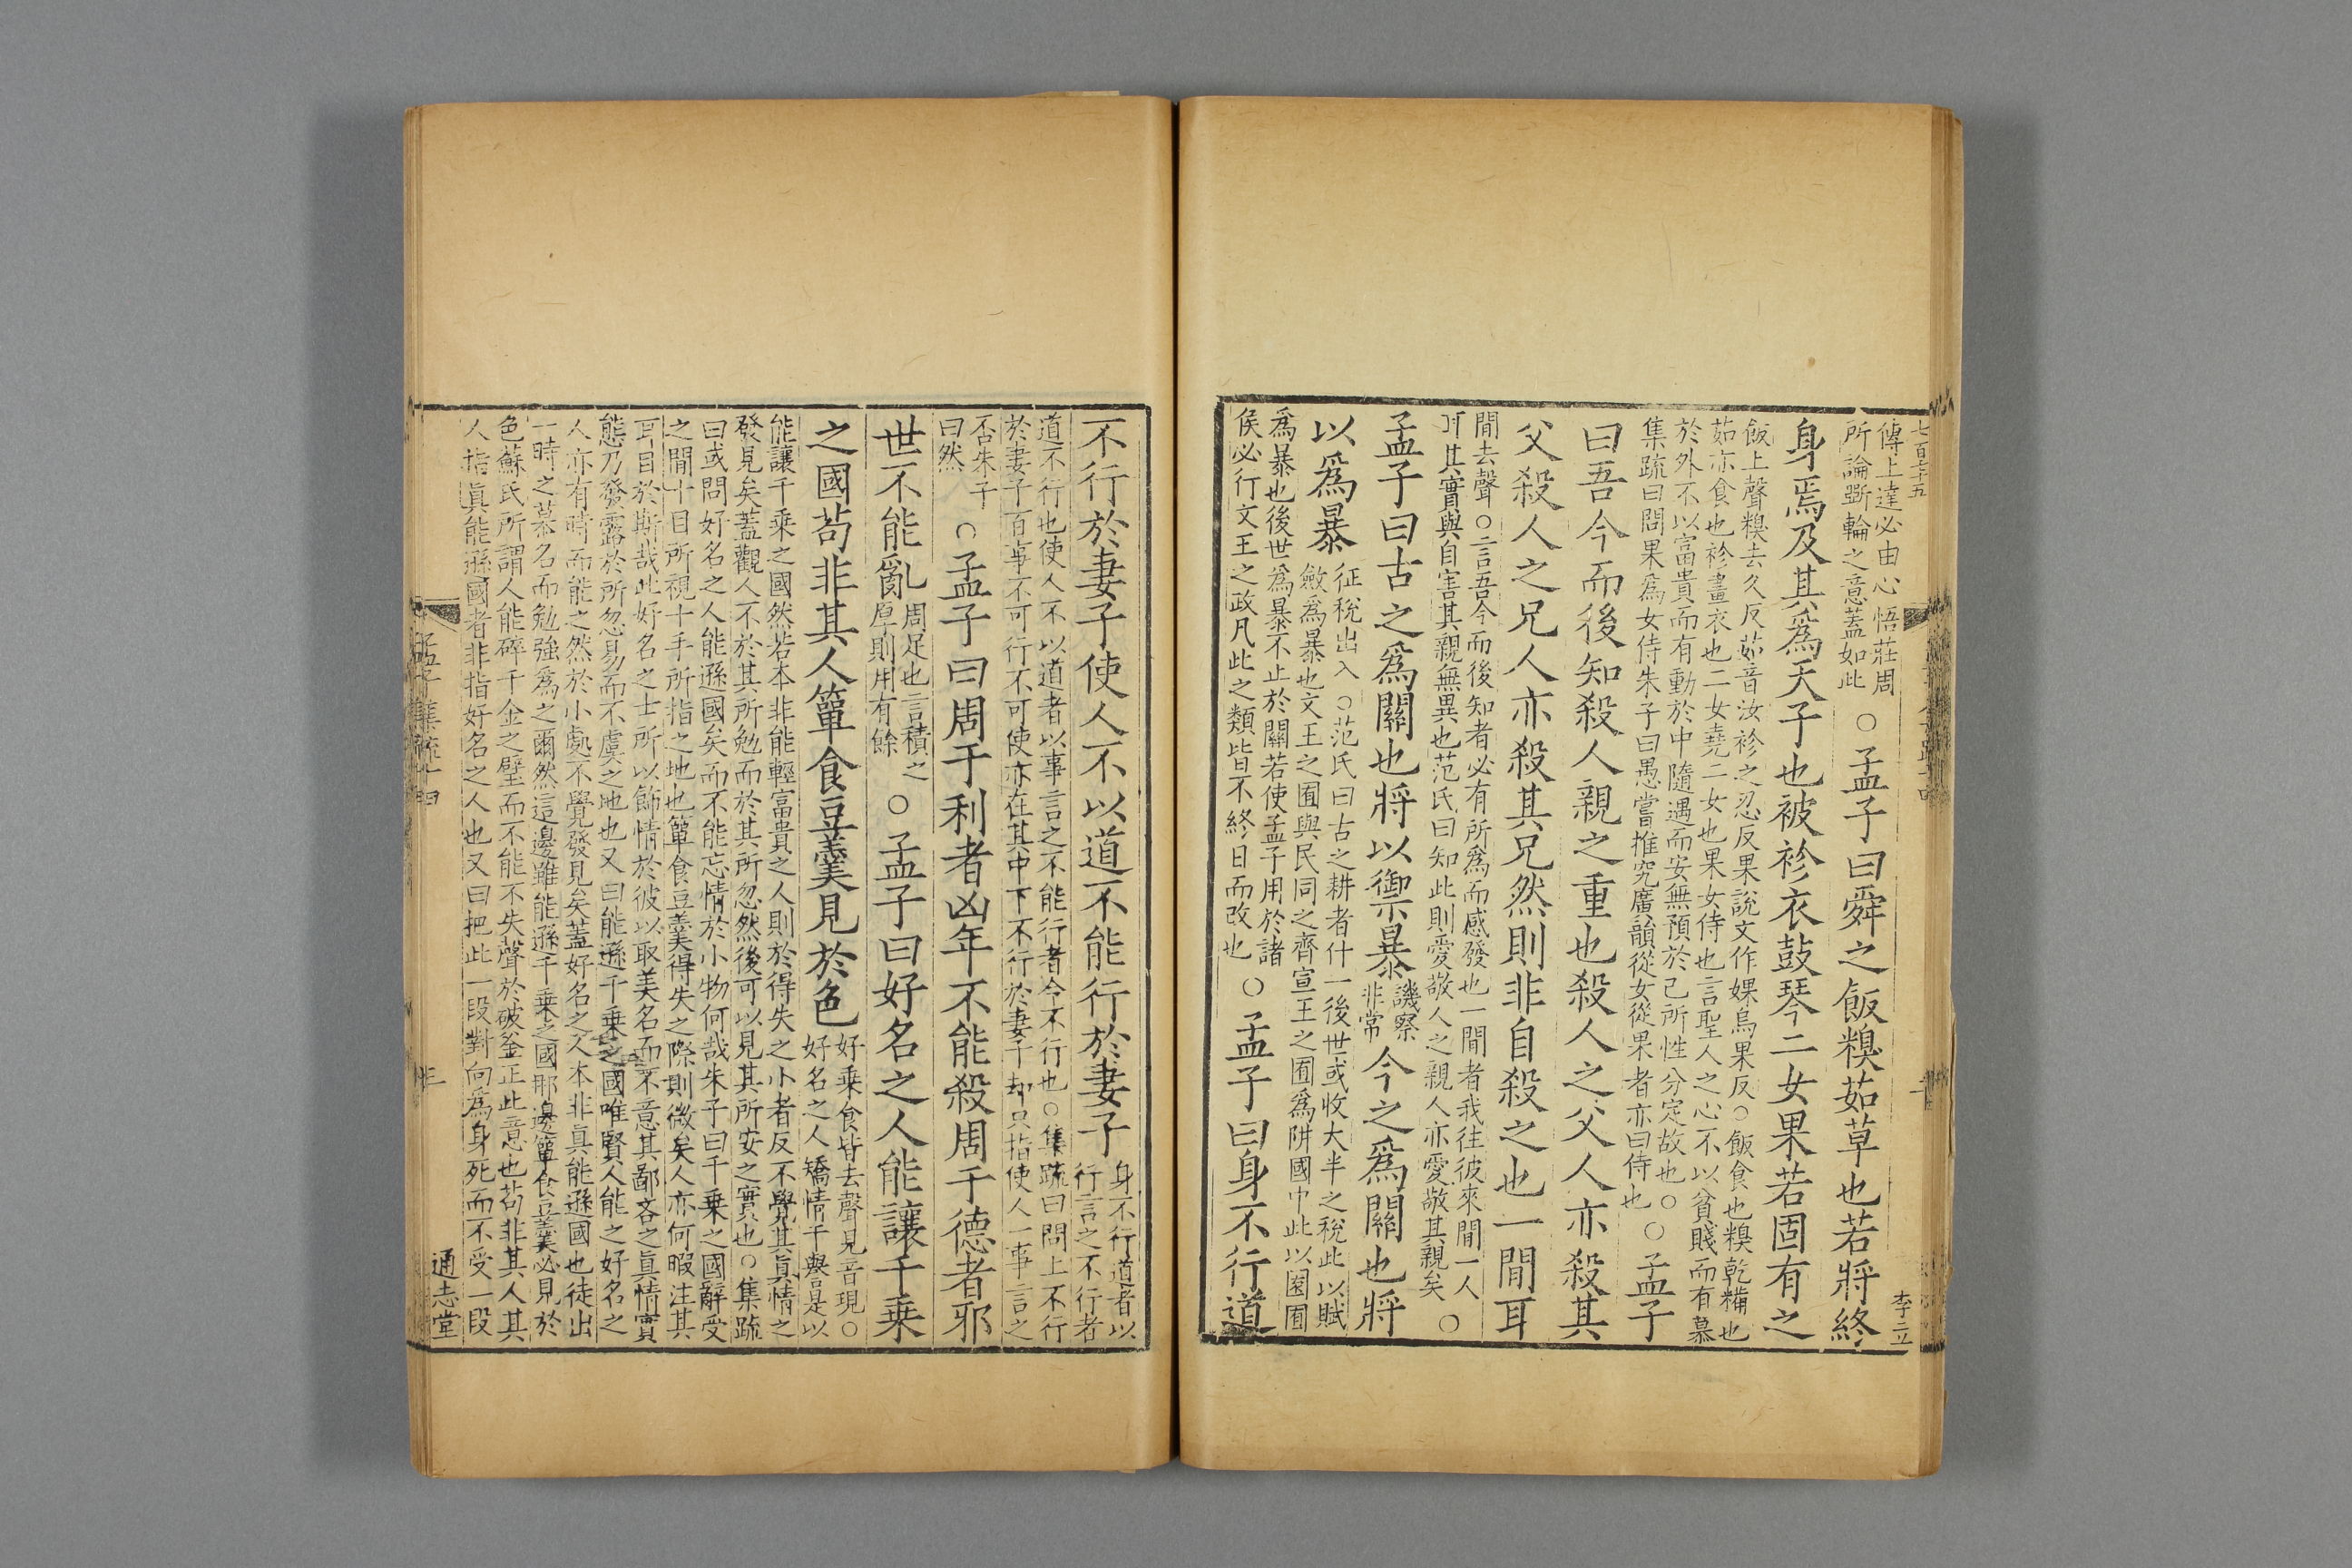 七百七十五
傳上達必由心悟莊周
所論斲輪之意蓋如此
○孟子曰舜之飯糗茹草也若將終
李立
身焉及其爲天子也被袗衣鼓琴二女果若固有之
飯上聲糗去久反茹音汝袗之忍反果說文作婐烏果反○飯食也糗乾糒也
茹亦食也袗畫衣也二女堯二女也果女侍也言聖人之心不以貧賤而有慕
於外不以富貴而有動於中隨遇而安無預於己所性分定故也○
集疏曰問果爲女侍朱子曰愚嘗推究廣韻從女從果者亦曰侍也
○孟子
曰吾今而後知殺人親之重也殺人之父人亦殺其
父殺人之兄人亦殺其兄然則非自殺之也一閒耳
閒去聲○言吾今而後知者必有所爲而感發也一閒者我往彼來閒一人
耳其實與自害其親無異也范氏曰知此則愛敬人之親人亦愛敬其親矣
○
孟子曰古之爲關也將以禦暴
譏察
非常
今之爲關也將
以爲暴
征稅出入○范氏曰古之耕者什一後世或收大半之稅此以賦
斂爲暴也文王之囿與民同之齊宣王之囿爲阱國中此以園囿
爲暴也後世爲暴不止於關若使孟子用於諸
侯必行文王之政凡此之類皆不終日而改也
○孟子曰身不行道
不行於妻子使人不以道不能行於妻子
身不行道者以
行言之不行者
道不行也使人不以道者以事言之不能行者令不行也○集疏曰問上不行
於妻子百事不可行不可使亦在其中下不行於妻子却只指使人一事言之
否朱子
曰然
○孟子曰周于利者凶年不能殺周于德者邪
世不能亂
周足也言積之
厚則用有餘
○孟子曰好名之人能讓千乘
之國苟非其人簞食豆羹見於色
好乘食皆去聲見音現○
好名之人矯情干譽是以
能讓千乘之國然若本非能輕富貴之人則於得失之小者反不覺其眞情之
發見矣蓋觀人不於其所勉而於其所忽然後可以見其所安之實也○集疏
曰或問好名之人能遜國矣而不能忘情於小物何哉朱子曰千乘之國辭受
之閒十目所視十手所指之地也簞食豆羹得失之際則微矣人亦何暇注其
耳目於斯哉此好名之士所以飾情於彼以取美名而不意其鄙吝之眞情實
態乃發露於所忽易而不虞之地也又曰能遜千乘之國唯賢人能之好名之
人亦有時而能之然於小處不覺發見矣蓋好名之人本非眞能遜國也徒出
一時之慕名而勉強爲之爾然這邊雖能遜千乘之國那邊簞食豆羹必見於
色蘇氏所謂人能碎千金之璧而不能不失聲於破釜正此意也苟非其人其
人指眞能遜國者非指好名之人也又曰把此一段對向爲身死而不受一段
孟子集疏十四
三
通志堂